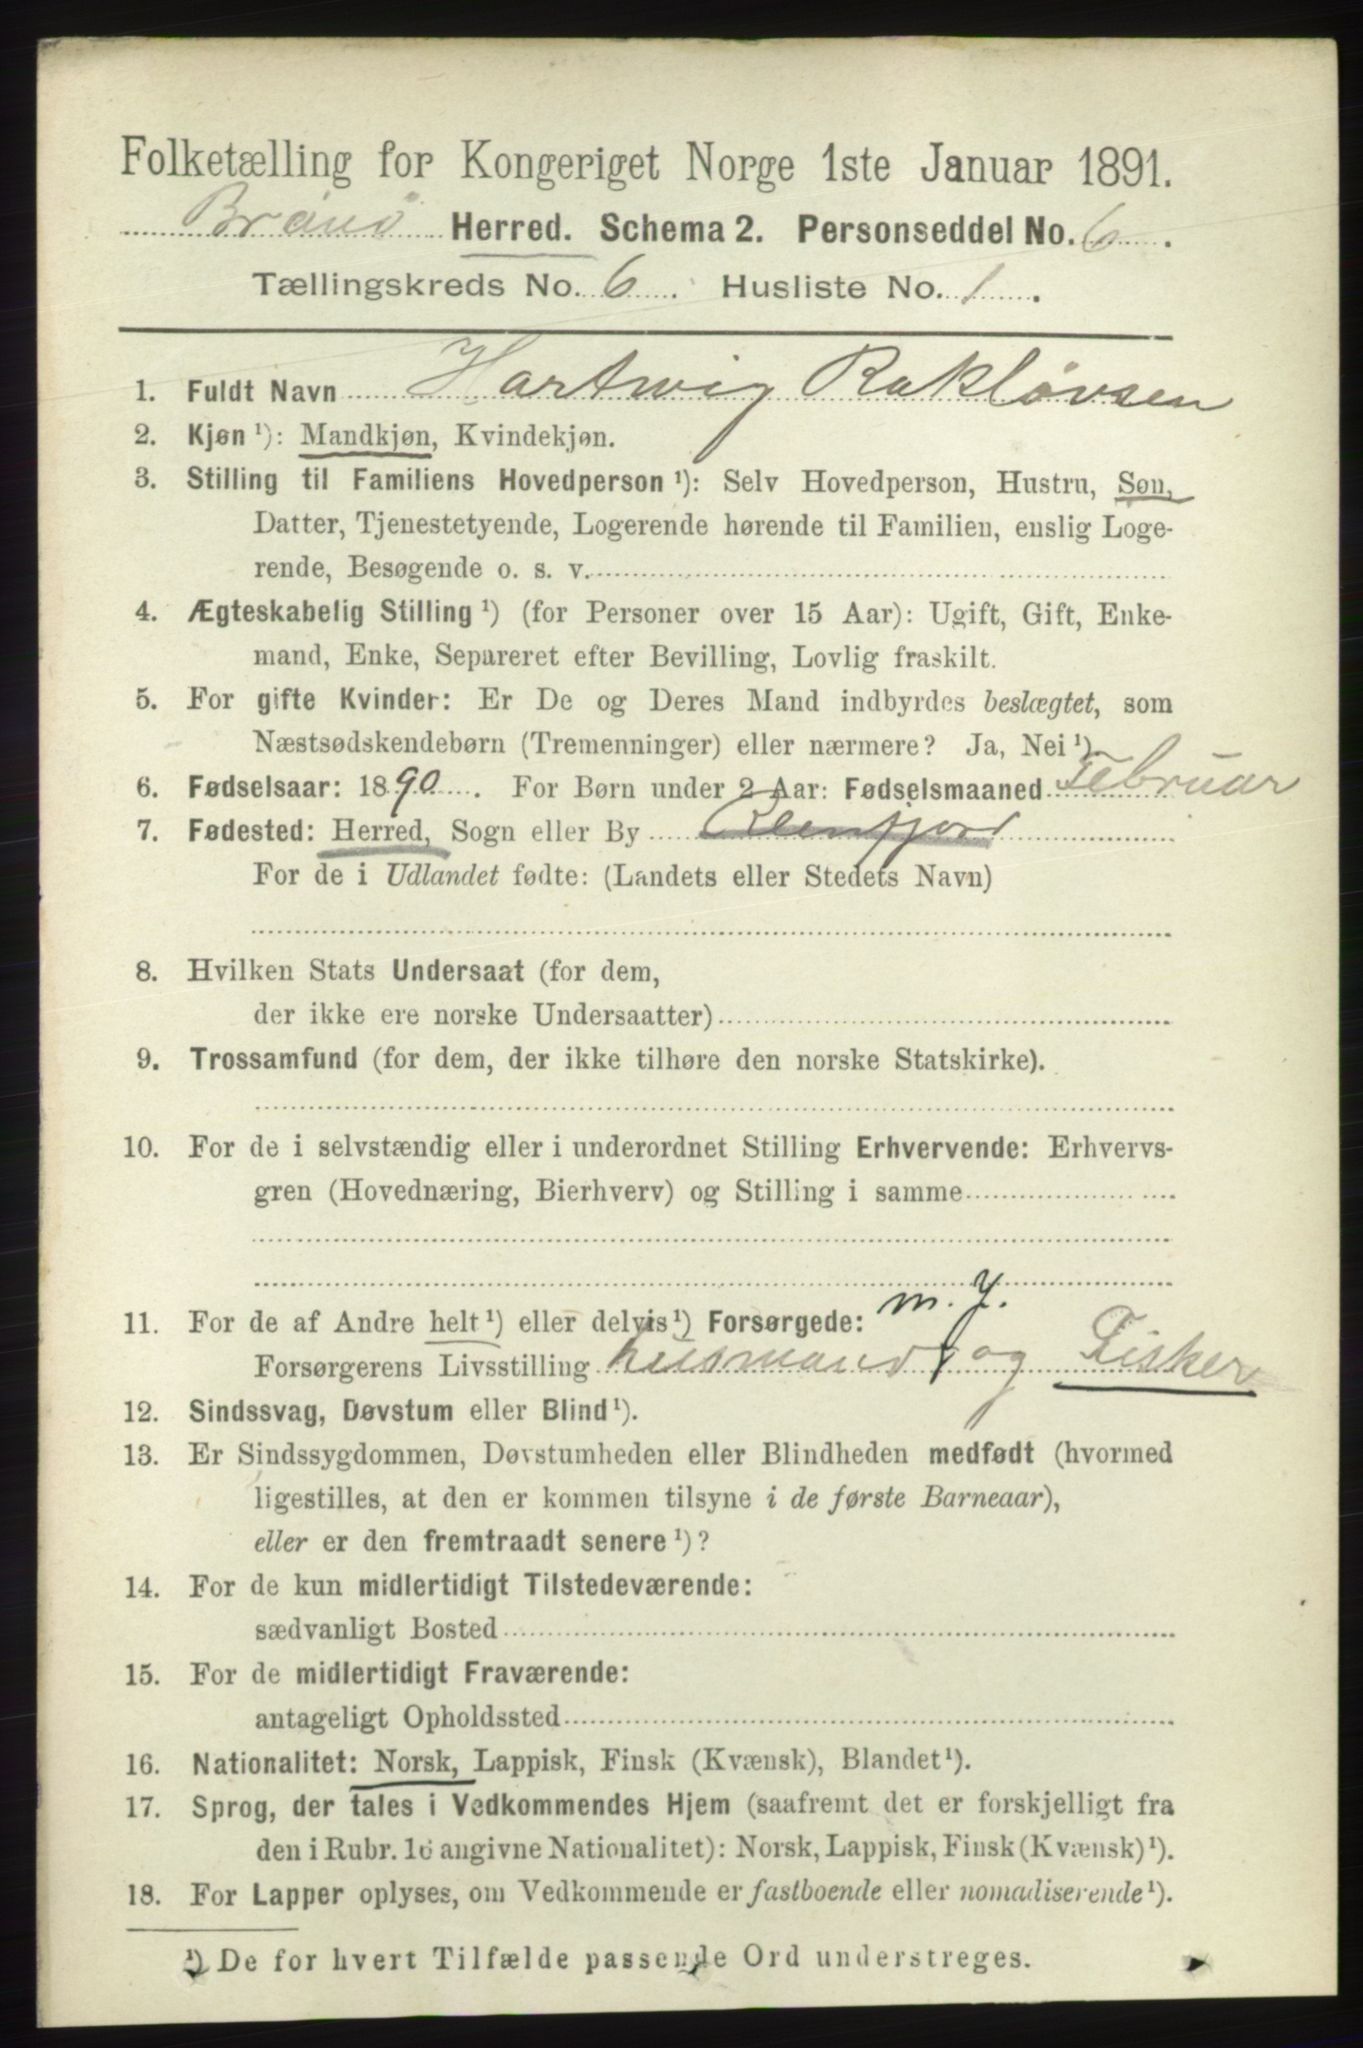 Folketælling for Kongeriget Norge 1ste Januar 1891.
Brønø Herred. Schema 2. Personseddel No. 6.
Tællingskreds No. 6. Husliste No. 1.
1. Fuldt Navn Hartwig Rakløvsen
2. Kjøn ¹): Mandkjøn, Kvindekjøn.
3. Stilling til Familiens Hovedperson ¹): Selv Hovedperson, Hustru, Søn,
Datter, Tjenestetyende, Logerende hørende til Familien, enslig Loge-
rende, Besøgende o. s. v.
4. Ægteskabelig Stilling ¹) (for Personer over 15 Aar): Ugift, Gift, Enke-
mand, Enke, Separeret efter Bevilling, Lovlig fraskilt.
5. For gifte Kvinder: Er De og Deres Mand indbyrdes beslægtet, som
Næstsødskendebørn (Tremenninger) eller nærmere? Ja, Nei ¹).
6. Fødselsaar: 1890. For Børn under 2 Aar: Fødselsmaaned Februar
7. Fødested: Herred, Sogn eller By
For de i Udlandet fødte: (Landets eller Stedets Navn)
8. Hvilken Stats Undersaat (for dem,
der ikke ere norske Undersaatter)
9. Trossamfund (for dem, der ikke tilhøre den norske Statskirke).
10. For de i selvstændig eller i underordnet Stilling Erhvervende: Erhvervs-
gren (Hovednæring, Bierhverv) og Stilling i samme
m. J.
11. For de af Andre helt ¹) eller delvis ¹) Forsørgede:
Forsørgerens Livsstilling husmand og Fisker
12. Sindssvag, Døvstum eller Blind ¹).
13. Er Sindssygdommen, Døvstumheden eller Blindheden medfødt (hvormed
ligestilles, at den er kommen tilsyne i de første Barneaar),
eller er den fremtraadt senere ¹)?
14. For de kun midlertidigt Tilstedeværende:
sædvanligt Bosted
15. For de midlertidigt Fraværende:
antageligt Opholdssted
16. Nationalitet: Norsk, Lappisk, Finsk (Kvænsk), Blandet ¹).
17. Sprog, der tales i Vedkommendes Hjem (saafremt det er forskjelligt fra
den i Rubr. 16 angivne Nationalitet): Norsk, Lappisk, Finsk (Kvænsk) ¹).
18. For Lapper oplyses, om Vedkommende er fastboende eller nomadiserende ¹).
¹) De for hvert Tilfælde passende Ord understreges.